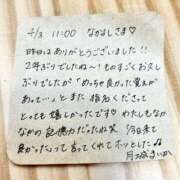 4/3 11:00 なかよしさま♡
昨日はありがとうございました!!
2年ぶりでしたね〜!ものすごくお久し
ぶりでしたが「めっちゃ良かった覚えが
あって…」とまた指名くださって
とっても嬉しかったです♡わたしもなか
なかの記憶力だったね笑 今回来て
良かった、って言ってくれてホッとした♪